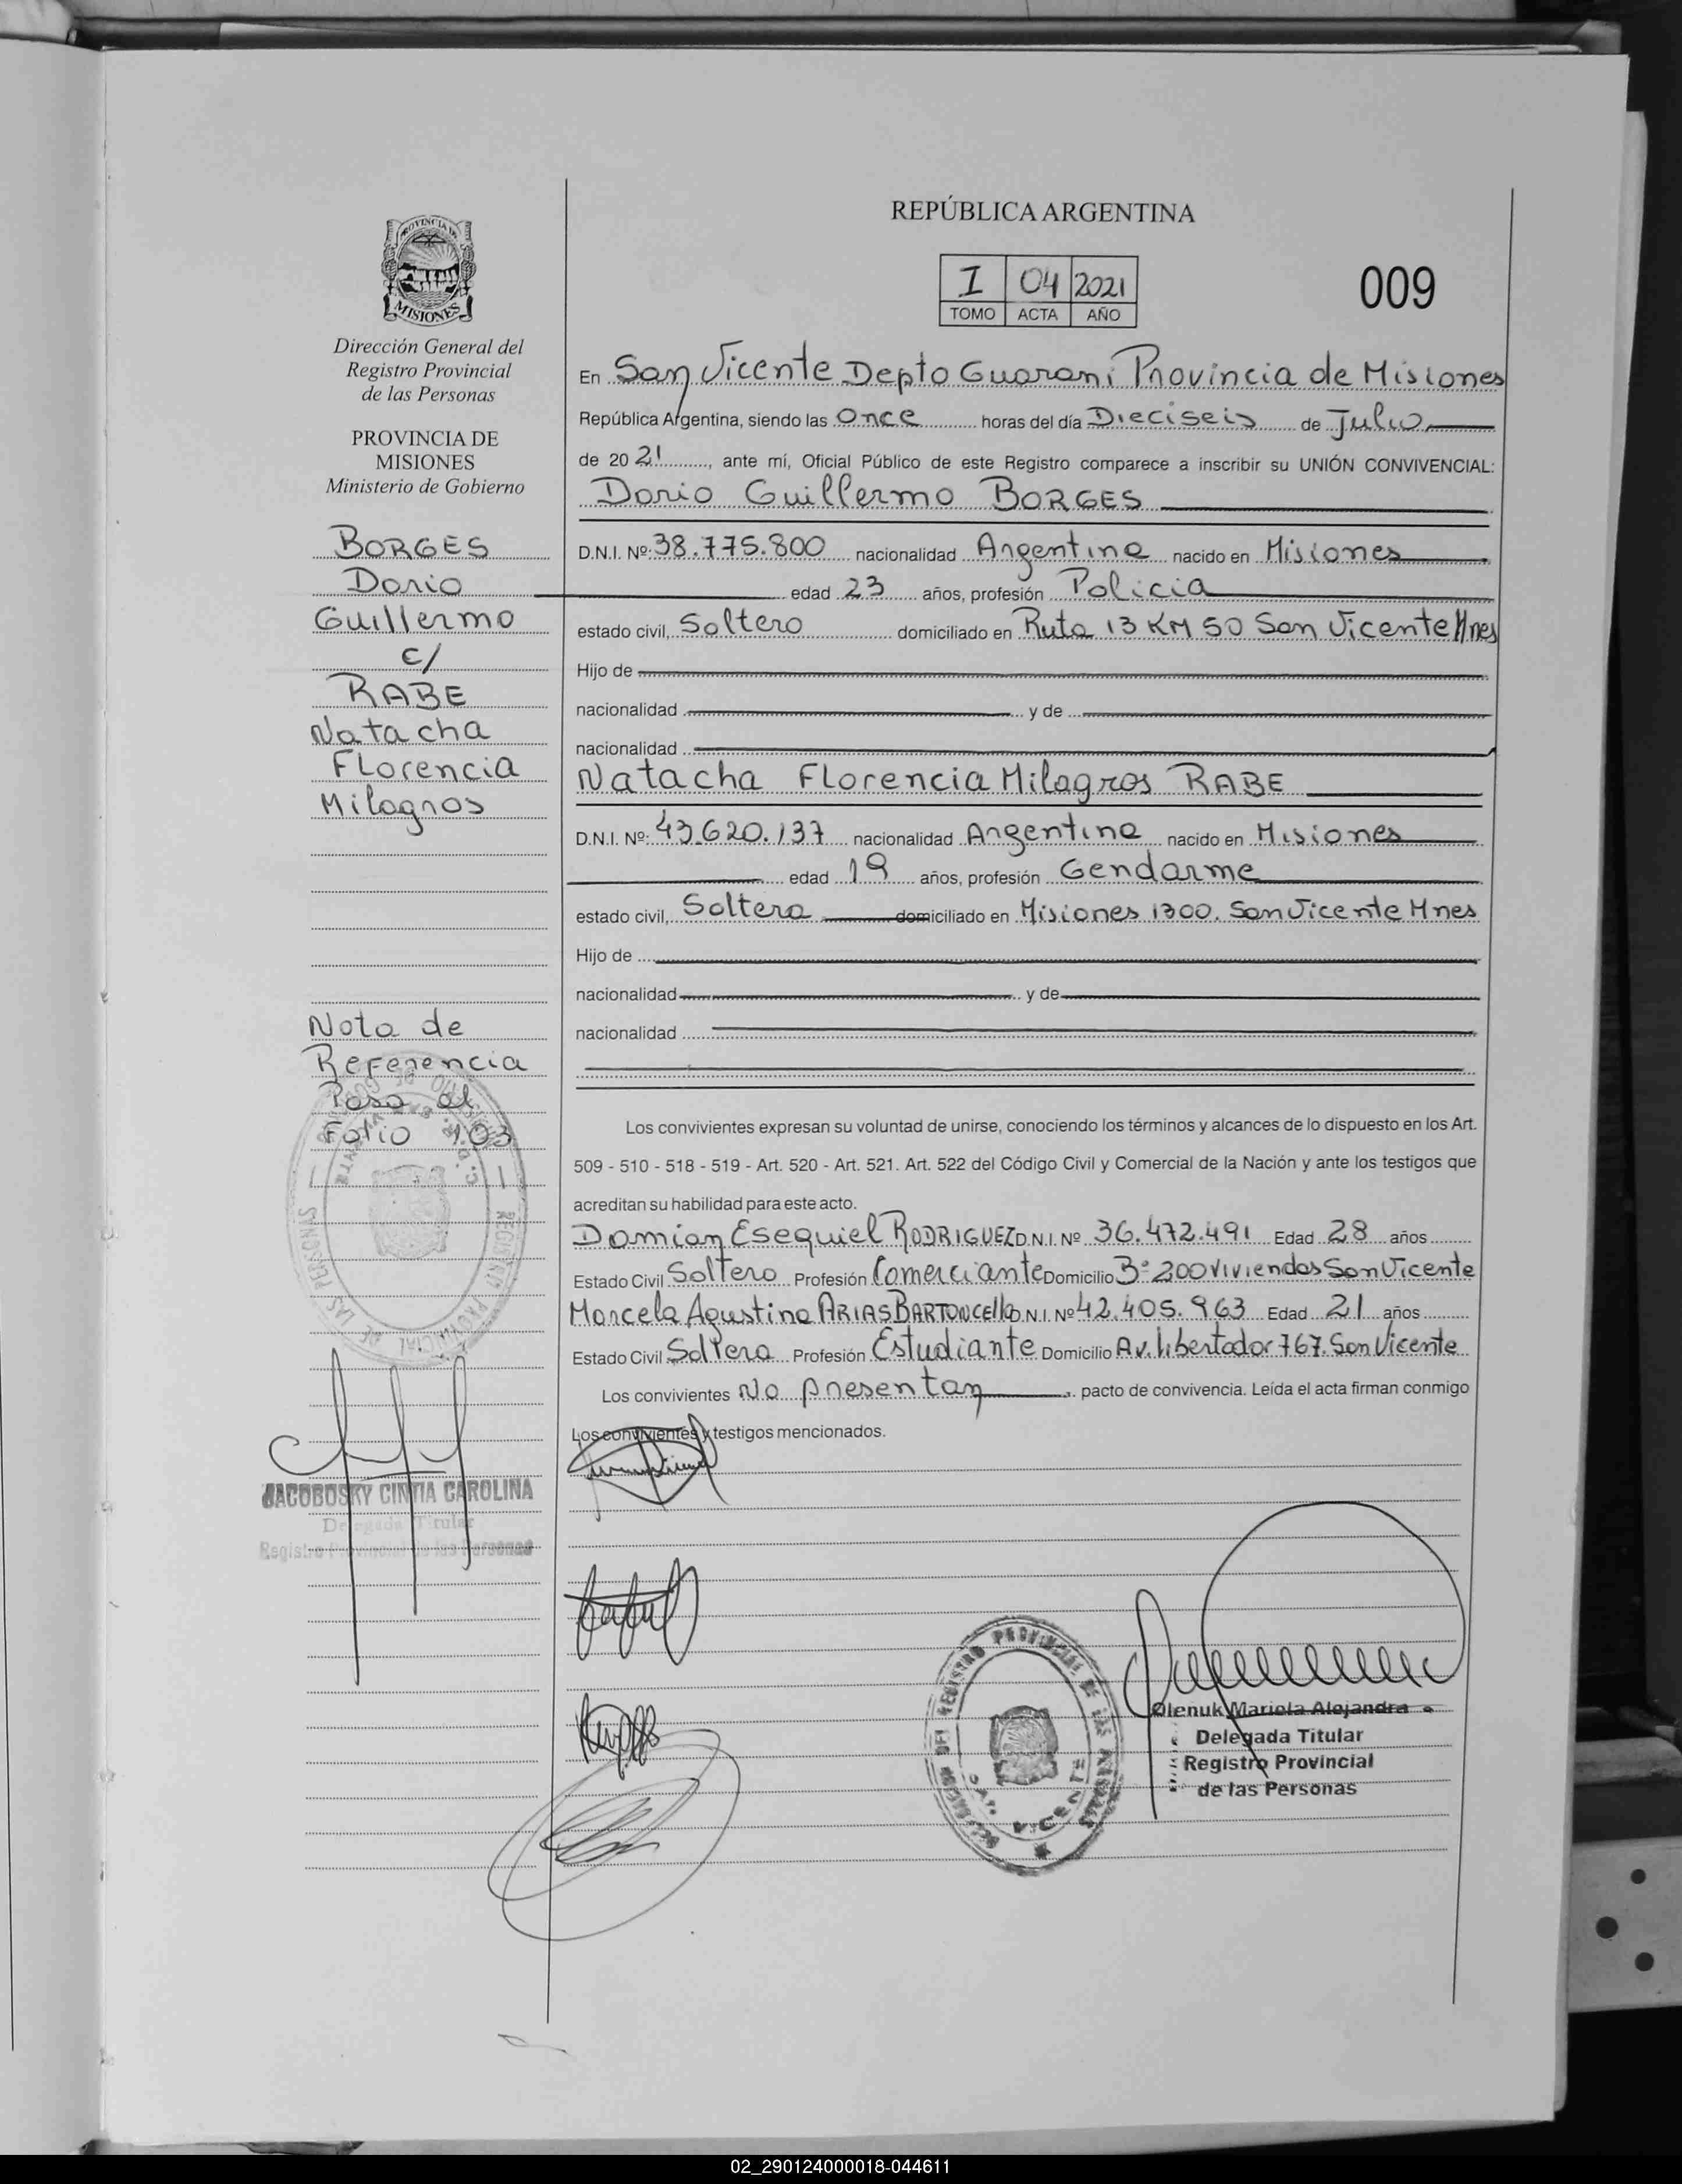 REPÚBLICA ARGENTINA
I 04 2021
TOMO ACTA AÑO
009
PROVINCIA DE
MISIONES
Dirección General del
Registro Provincial
de las Personas
PROVINCIA DE
MISIONES
Ministerio de Gobierno
BORGES
Dario
Guillermo
c/
RABE
Natacha
Florencia
Milagros
Nota de
Referencia
Pasa al
Folio 103
REGISTRO PROVINCIAL DE LAS PERSONAS
JACOBOSKY CINTIA CAROLINA
Delegada Titular
Registro Provincial de las Personas
En San Vicente Depto Guarani Provincia de Misiones
República Argentina, siendo las Once horas del día Dieciseis de Julio
de 2021, ante mí, Oficial Público de este Registro comparece a inscribir su UNIÓN CONVIVENCIAL:
Dario Guillermo BORGES
D.N.I. Nº: 38.775.800 nacionalidad Argentina nacido en Misiones
edad 23 años, profesión Policia
estado civil, Soltero domiciliado en Ruta 13 KM 50 San Vicente Mnes
Hijo de
nacionalidad y de
nacionalidad
Natacha Florencia Milagros RABE
D.N.I. Nº: 43.620.137 nacionalidad Argentina nacido en Misiones
edad 19 años, profesión Gendarme
estado civil, Soltera domiciliado en Misiones 1300. San Vicente Mnes
Hijo de
nacionalidad y de
nacionalidad
Los convivientes expresan su voluntad de unirse, conociendo los términos y alcances de lo dispuesto en los Art.
509 - 510 - 518 - 519 - Art. 520 - Art. 521. Art. 522 del Código Civil y Comercial de la Nación y ante los testigos que
acreditan su habilidad para este acto.
Damian Esequiel RODRIGUEZ D.N.I. Nº 36.472.491 Edad 28 años
Estado Civil Soltero Profesión Comerciante Domicilio Bº 200 viviendas San Vicente
Marcela Agustina ARIAS BARTONCEllo D.N.I. Nº 42.405.963 Edad 21 años
Estado Civil Soltera Profesión Estudiante Domicilio Av. Libertador 767. San Vicente
Los convivientes No presentan pacto de convivencia. Leída el acta firman conmigo
Los convivientes y testigos mencionados.
REGISTRO PROVINCIAL DE LAS PERSONAS
VICENTE
Olenuk Mariela Alejandra
Delegada Titular
Registro Provincial
de las Personas
02_290124000018-044611